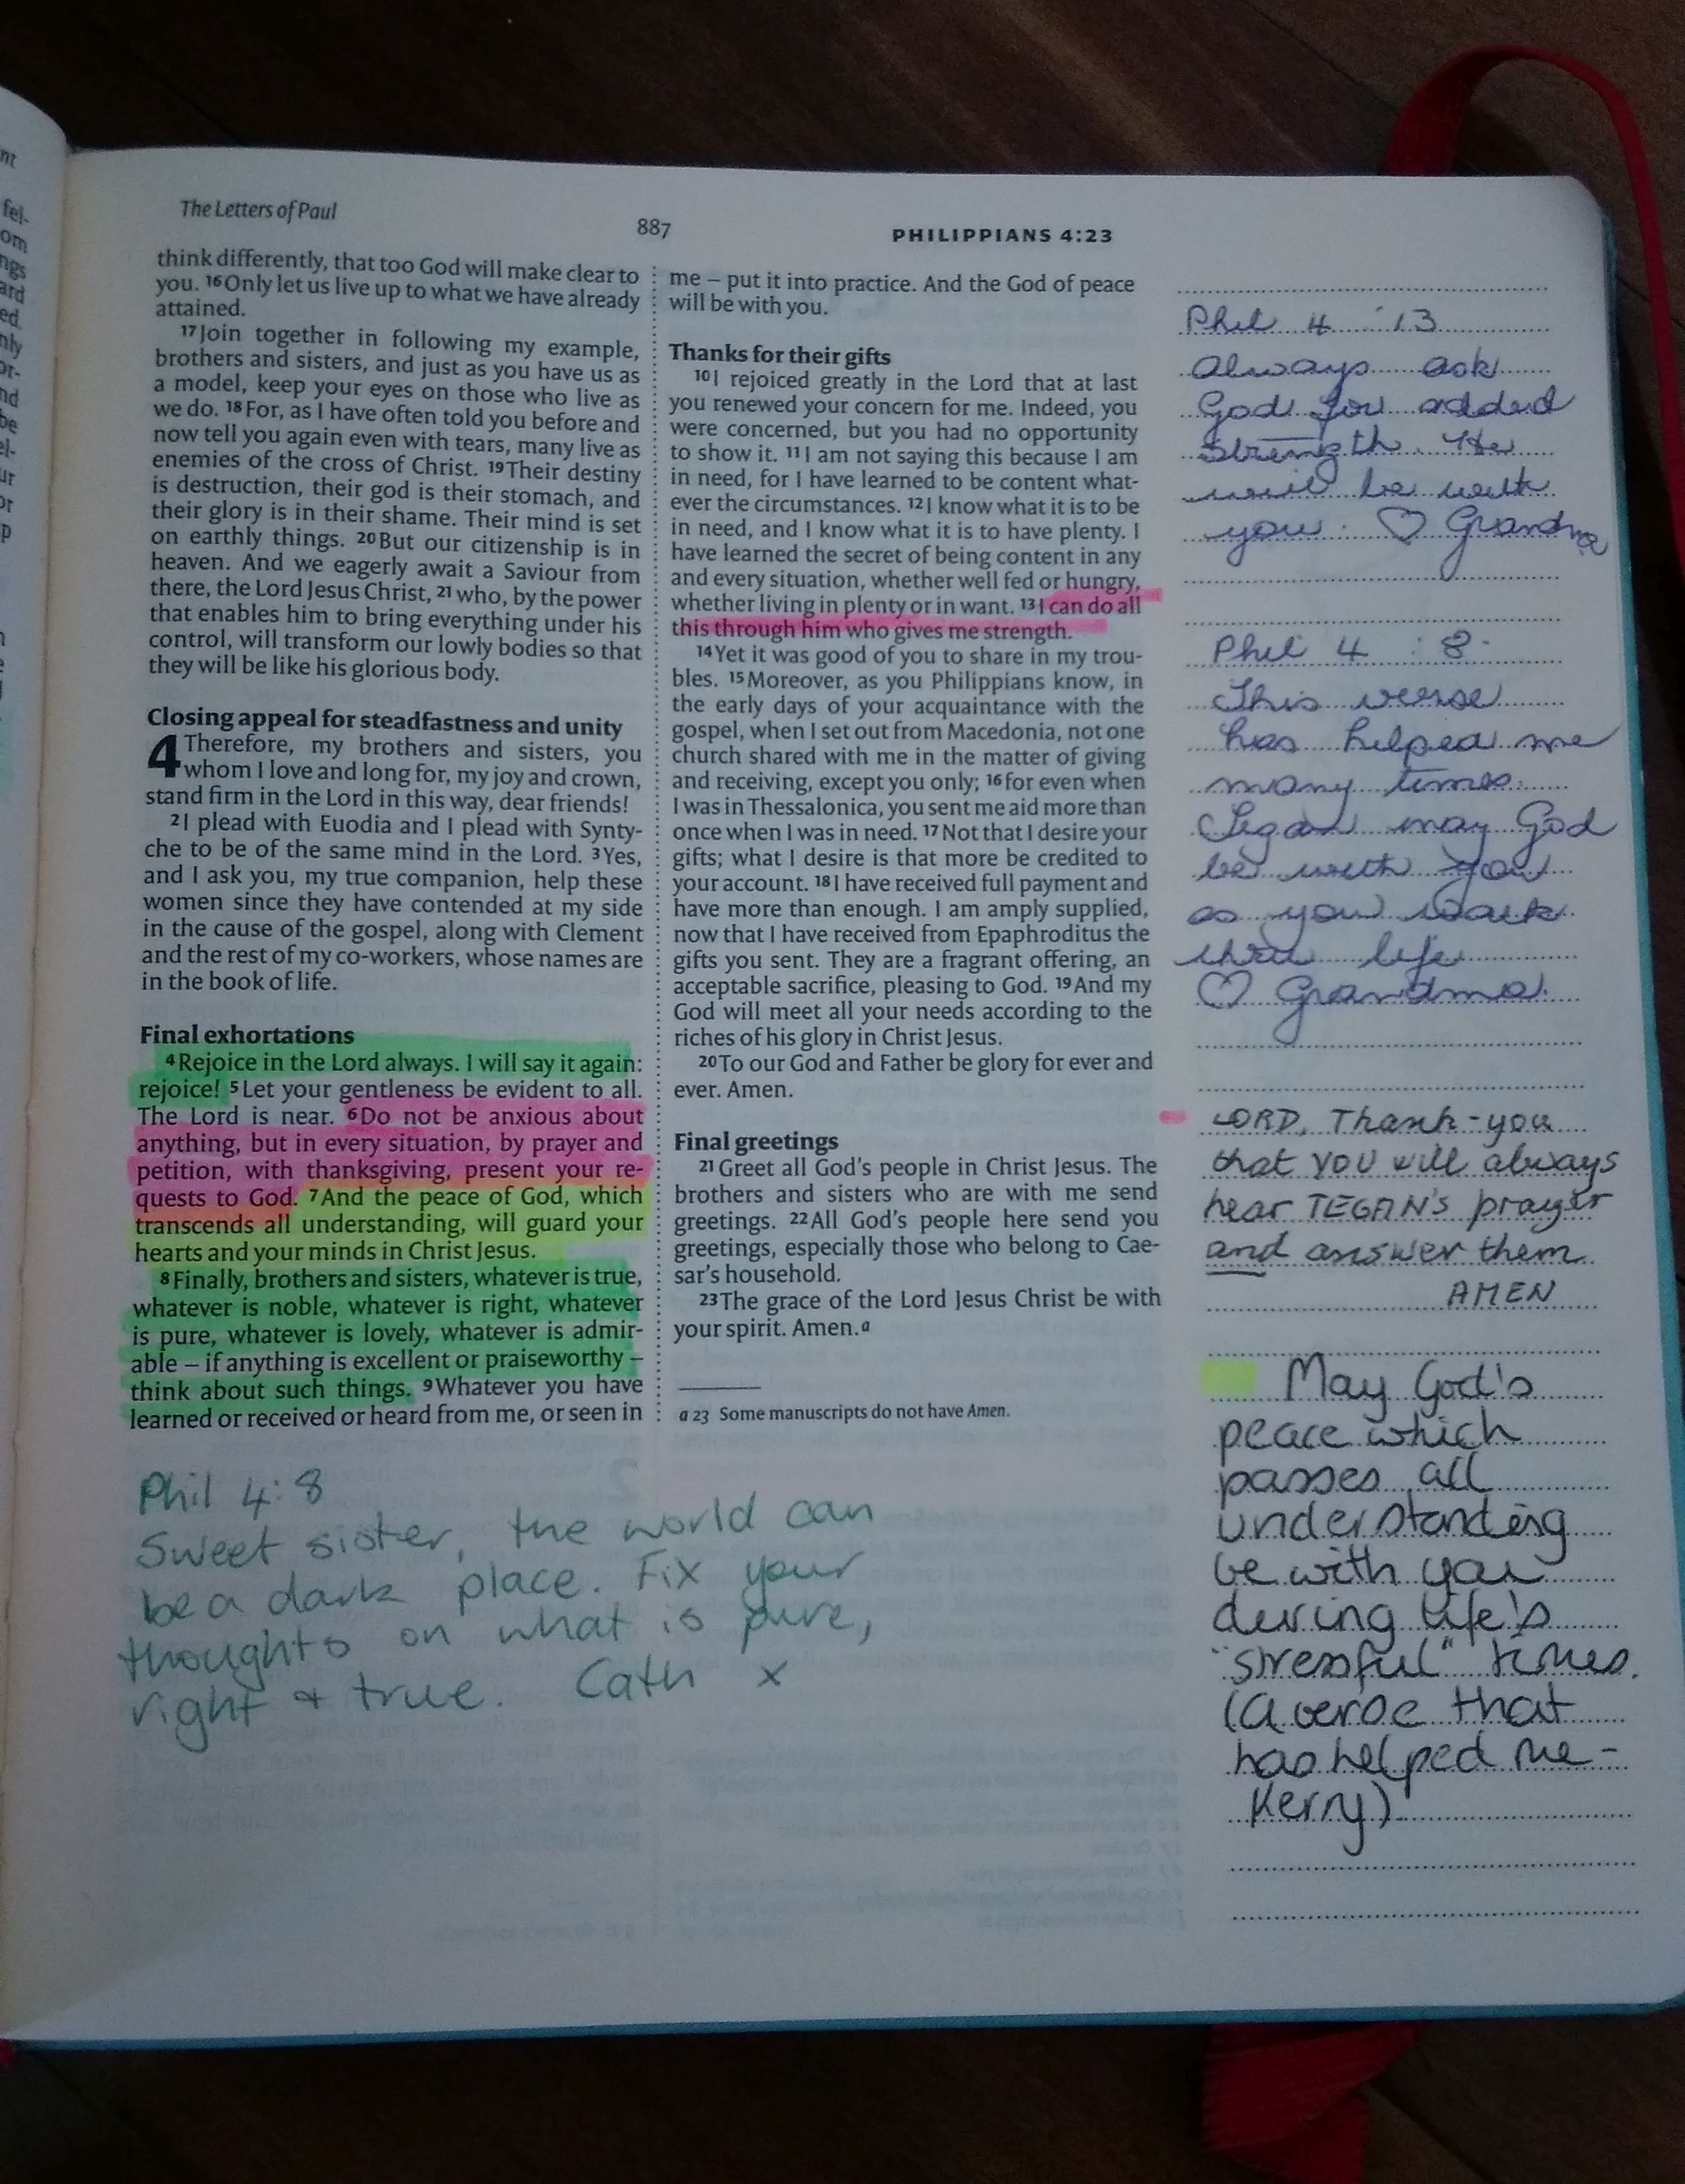 The Letters of Paul
887
PHILIPPIANS 4:23
think differently, that too God will make clear to
you. 16Only let us live up to what we have already
attained.
17Join together in following my example,
brothers and sisters, and just as you have us as
a model, keep your eyes on those who live as
we do. 18For, as I have often told you before and
now tell you again even with tears, many live as
enemies of the cross of Christ. 19Their destiny
is destruction, their god is their stomach, and
their glory is in their shame. Their mind is set
on earthly things. 20But our citizenship is in
heaven. And we eagerly await a Saviour from
there, the Lord Jesus Christ, 21 who, by the power
that enables him to bring everything under his
control, will transform our lowly bodies so that
they will be like his glorious body.
Closing appeal for steadfastness and unity
4 Therefore, my brothers and sisters, you
whom I love and long for, my joy and crown,
stand firm in the Lord in this way, dear friends!
2I plead with Euodia and I plead with Synty-
che to be of the same mind in the Lord. 3Yes,
and I ask you, my true companion, help these
women since they have contended at my side
in the cause of the gospel, along with Clement
and the rest of my co-workers, whose names are
in the book of life.
Final exhortations
4Rejoice in the Lord always. I will say it again:
rejoice! 5Let your gentleness be evident to all.
The Lord is near. 6Do not be anxious about
anything, but in every situation, by prayer and
petition, with thanksgiving, present your re-
quests to God. 7And the peace of God, which
transcends all understanding, will guard your
hearts and your minds in Christ Jesus.
8Finally, brothers and sisters, whatever is true,
whatever is noble, whatever is right, whatever
is pure, whatever is lovely, whatever is admir-
able – if anything is excellent or praiseworthy –
think about such things. 9Whatever you have
learned or received or heard from me, or seen in
me – put it into practice. And the God of peace
will be with you.
Thanks for their gifts
10I rejoiced greatly in the Lord that at last
you renewed your concern for me. Indeed, you
were concerned, but you had no opportunity
to show it. 11I am not saying this because I am
in need, for I have learned to be content what-
ever the circumstances. 12I know what it is to be
in need, and I know what it is to have plenty. I
have learned the secret of being content in any
and every situation, whether well fed or hungry,
whether living in plenty or in want. 13I can do all
this through him who gives me strength.
14Yet it was good of you to share in my trou-
bles. 15Moreover, as you Philippians know, in
the early days of your acquaintance with the
gospel, when I set out from Macedonia, not one
church shared with me in the matter of giving
and receiving, except you only; 16for even when
I was in Thessalonica, you sent me aid more than
once when I was in need. 17Not that I desire your
gifts; what I desire is that more be credited to
your account. 18I have received full payment and
have more than enough. I am amply supplied,
now that I have received from Epaphroditus the
gifts you sent. They are a fragrant offering, an
acceptable sacrifice, pleasing to God. 19And my
God will meet all your needs according to the
riches of his glory in Christ Jesus.
20To our God and Father be glory for ever and
ever. Amen.
Final greetings
21Greet all God's people in Christ Jesus. The
brothers and sisters who are with me send
greetings. 22All God's people here send you
greetings, especially those who belong to Cae-
sar's household.
23The grace of the Lord Jesus Christ be with
your spirit. Amen.a
a 23 Some manuscripts do not have Amen.
Phil 4:8
Sweet sister, the world can
be a dark place. Fix your
thoughts on what is pure,
right & true. Cath x
Phil 4:13
Always ask
God for added
Strength. He
will be with
you. ♡ Grandma
Phil 4:8.
This verse
has helped me
many times.
Tegan may God
be with you
as you walk
thru life
♡ Grandma.
LORD, Thank-you
that YOU will always
hear TEGAN'S prayer
and answer them
AMEN
May God's
peace which
passes all
understanding
be with you
during life's
"stressful" times.
(A verse that
has helped me -
Kerry)